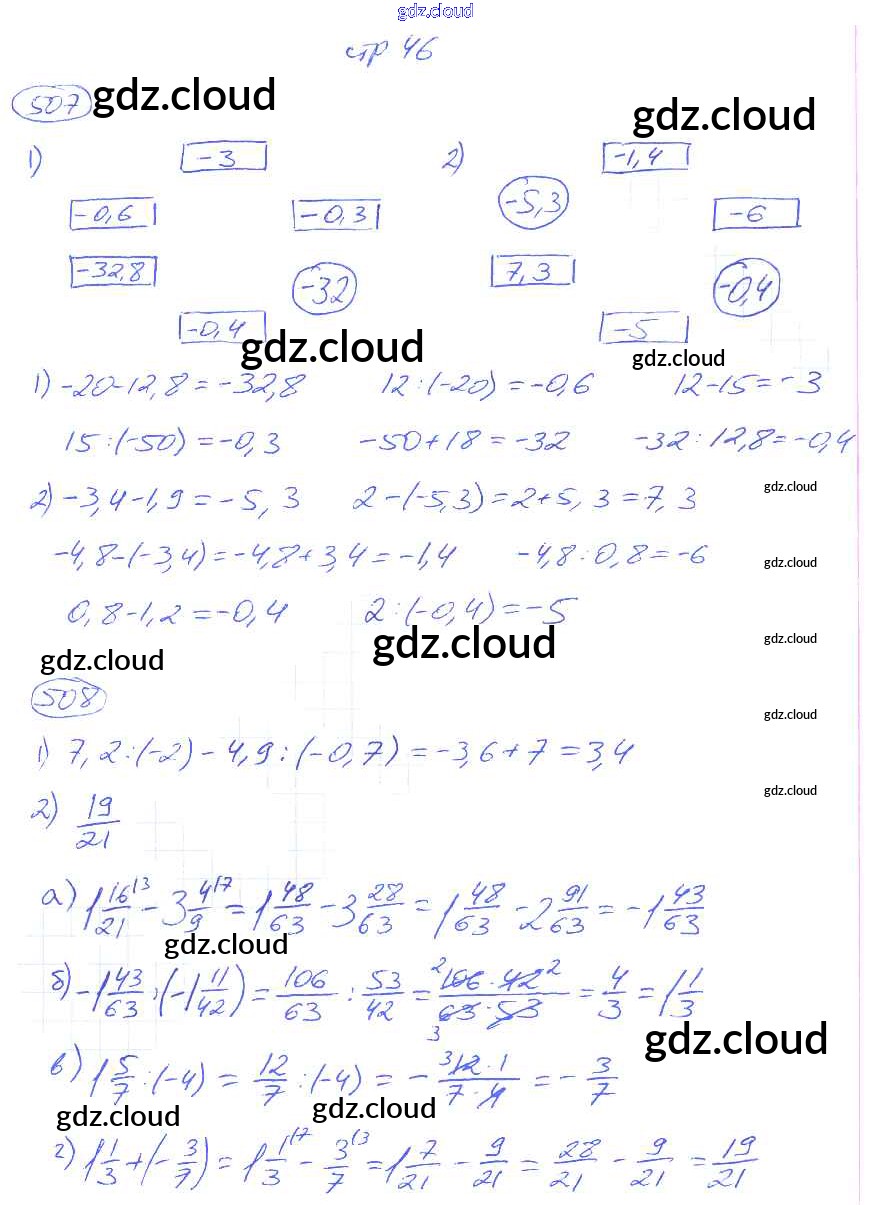 gdz.cloud
стр 46
507 gdz.cloud gdz.cloud
1) -3 2) -1,4
-0,6 -0,3 -5,3 -6
-32,8 -32 7,3 -0,4
-0,4 -5
gdz.cloud gdz.cloud
1) -20-12,8=-32,8 12:(-20)=-0,6 12-15=-3
15:(-50)=-0,3 -50+18=-32 -32:12,8=-0,4
2) -3,4-1,9=-5,3 2-(-5,3)=2+5,3=7,3 gdz.cloud
-4,8-(-3,4)=-4,8+3,4=-1,4 -4,8:0,8=-6 gdz.cloud
0,8-1,2=-0,4 2:(-0,4)=-5
gdz.cloud gdz.cloud gdz.cloud
508 gdz.cloud
1) 7,2:(-2)-4,9:(-0,7)=-3,6+7=3,4
gdz.cloud
2) 19/21
а) 1 16/21 |3 - 3 4/9 |7 = 1 48/63 - 3 28/63 = 1 48/63 - 2 91/63 = -1 43/63
gdz.cloud
б) -1 43/63 : (-1 11/42) = 106/63 : 53/42 = 2 106·42 2 / 3 63·53 = 4/3 = 1 1/3
gdz.cloud
в) 1 5/7 : (-4) = 12/7 : (-4) = - 3 12·1 / 7·4 = - 3/7
gdz.cloud gdz.cloud
г) 1 1/3 + (- 3/7) = 1 1/3 |7 - 3/7 |3 = 1 7/21 - 9/21 = 28/21 - 9/21 = 19/21